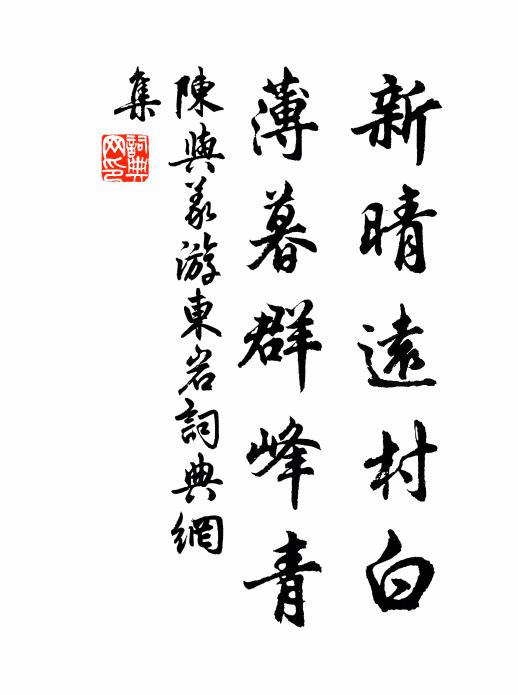 新晴遠村白
薄暮群峰青
陳與義游東岩詞典網
集
詞典网印